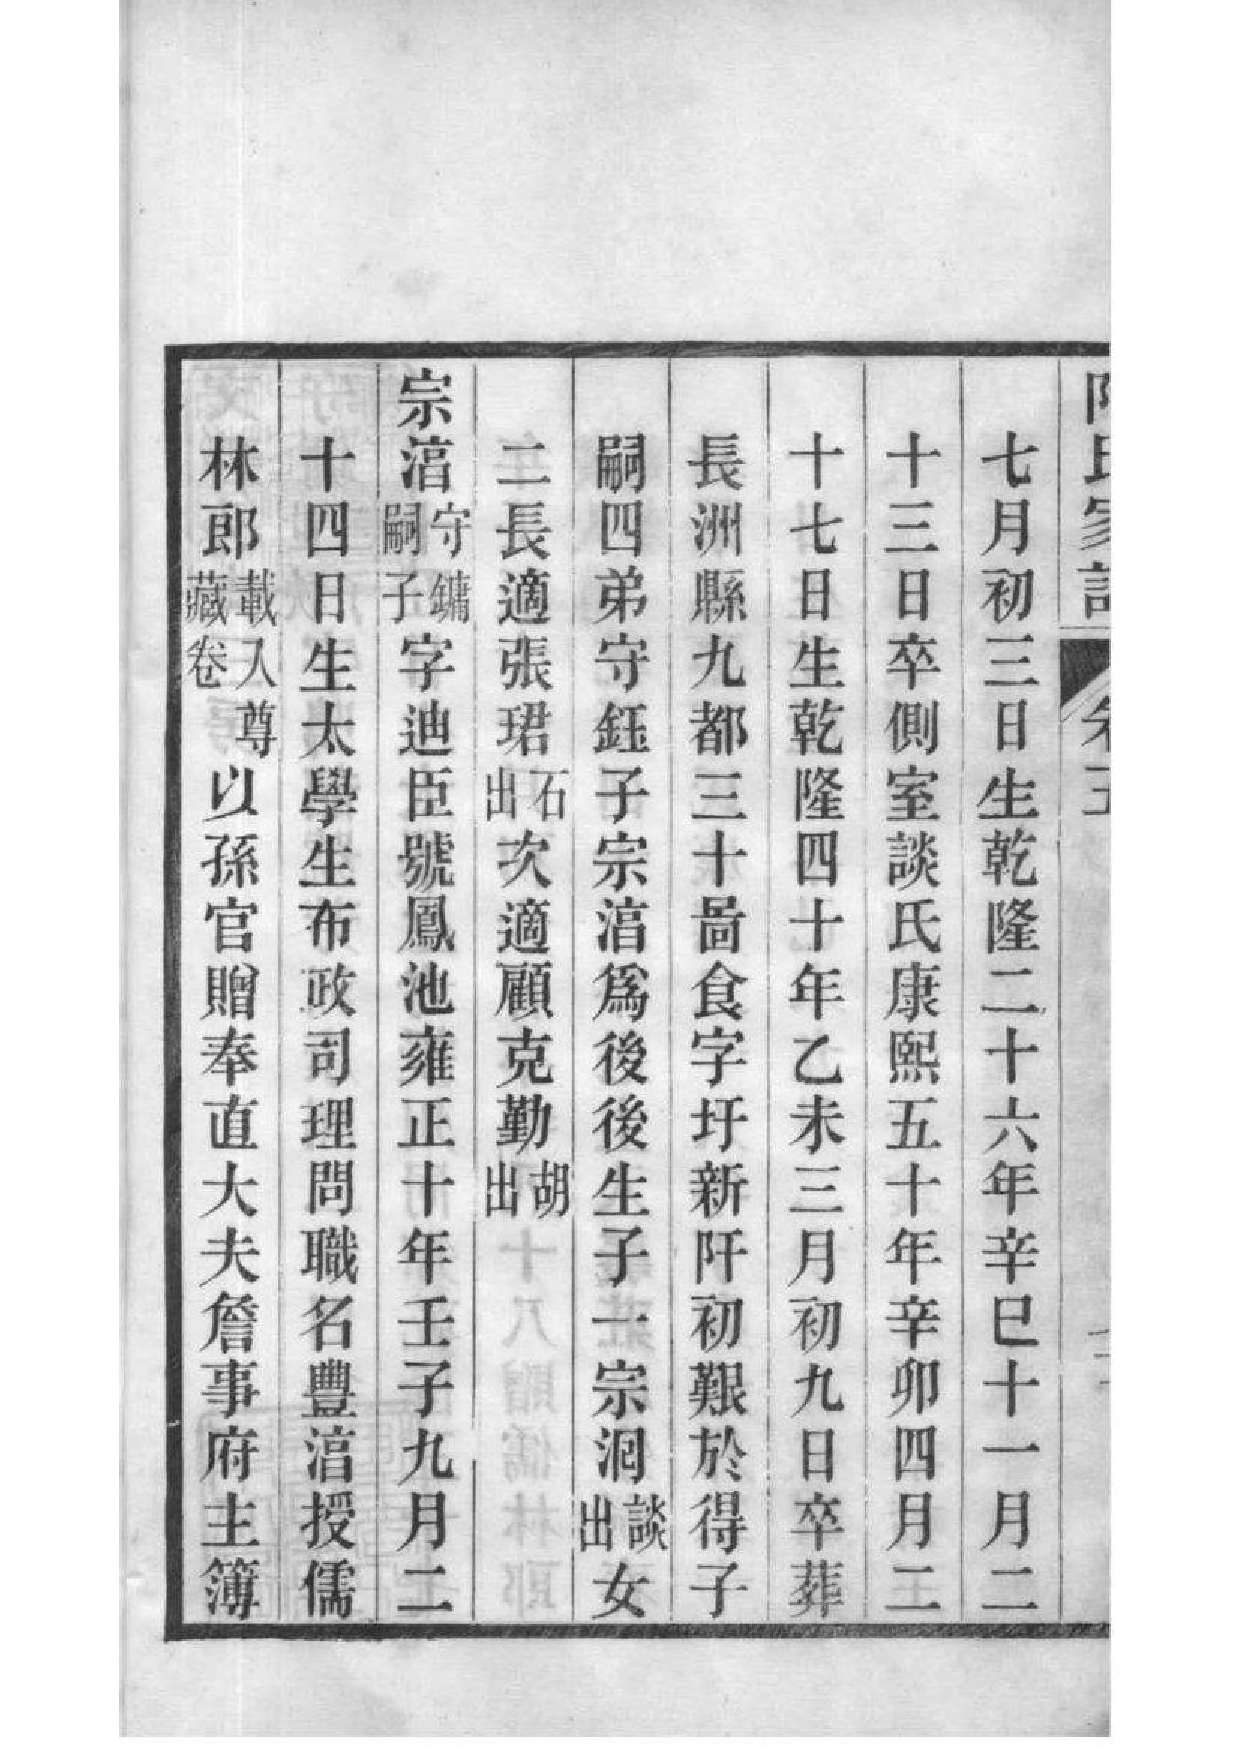 氏家
卷五
七月初三日生乾隆二十六年辛巳十一月二
十三日卒側室談氏康熙五十年辛卯四月二
十七日生乾隆四十年乙未三月初九日卒葬
長洲縣九都三十啚食字圩新阡初艱於得子
嗣四弟守鈺子宗湆爲後後生子一宗泂談出女
二長適張珺石出次適顧克勤胡出
宗湆守鏞嗣子字迪臣號鳳池雍正十年壬子九月二
十四日生太學生布政司理問職名豐湆授儒
林郎載入尊藏卷以孫官贈奉直大夫詹事府主簿